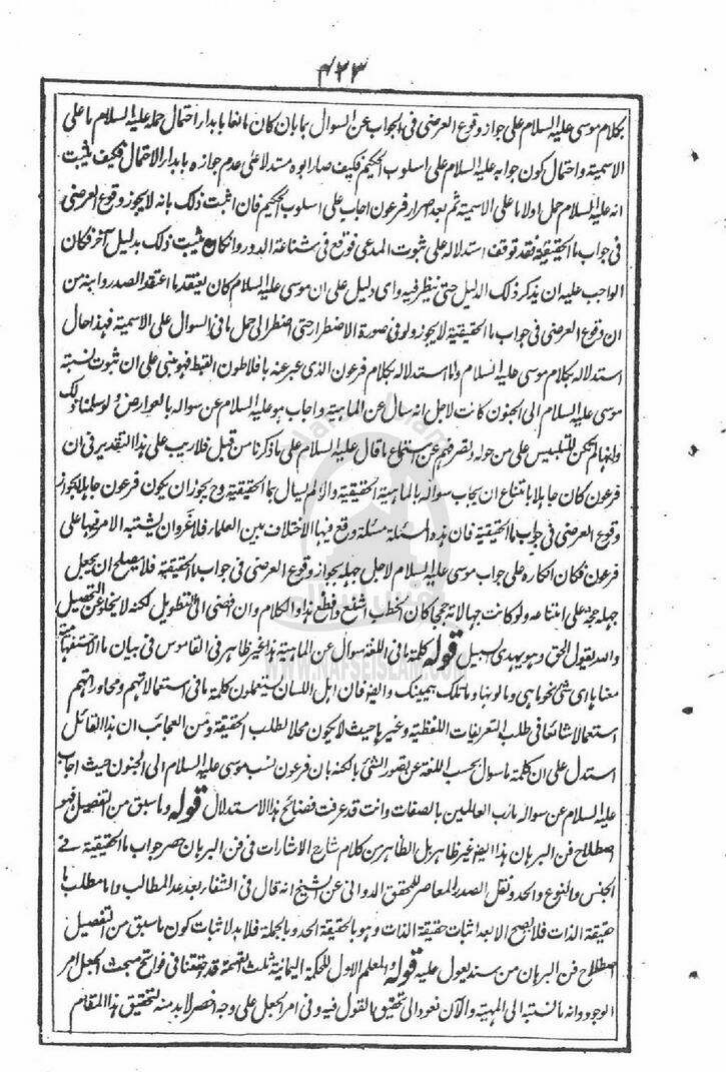 ٤٢٣
بكلام موسى عليه السلام على جواز وقوع العرضي في الجواب عن السوال بما بان كان مانعا بابداء احتمال حمله عليه السلام ما على
الاسمية واحتمال كون جوابه عليه السلام على اسلوب الحكيم فكيف صار ابوه مستدلا على عدم جوازه بابداء الاحتمال فكيف يثبت
انه عليه السلام حمل اولا ما على الاسمية ثم بعد اصرار فرعون اجاب على اسلوب الحكيم فان اثبت ذلك بانه لا يجوز وقوع العرضي
في جواب ما الحقيقية فقد توقف استدلاله على ثبوت المدعى فوقع في شناعة الدور وان كان يثبت ذلك بدليل آخر فكان
الواجب عليه ان يذكر ذلك الدليل حتى ينظر فيه واي دليل على ان موسى عليه السلام كان يعتقد ما اعتقد الصدر وابنه من
ان وقوع العرضي في جواب ما الحقيقية لا يجوز ولو في صورة الاضطرار حتى اضطر الى حمل ما في السوال على الاسمية فهذا حال
استدلاله بكلام موسى عليه السلام واما استدلاله بكلام فرعون الذي عبر عنه بافلاطون القبط فهو مبني على ان ثبوت نسبته
موسى عليه السلام الى الجنون كانت لاجل انه سال عن الماهية واجاب هو عليه السلام عن سواله بالعوارض ولو سلمنا ذلك
وانها لم تكن للتلبيس على من حوله وتصرفهم عن استماع ما قال عليه السلام على ما ذكرنا من قبل فلا ريب على هذا التقدير في ان
فرعون كان جاهلا بامتناع ان يجاب سواله بالماهية الحقيقية والا لم يسال بما الحقيقية وح يجوز ان يكون فرعون جاهلا بجواز
وقوع العرضي في جواب ما الحقيقية فان هذه المسئلة مسئلة وقع فيها الاختلاف بين العلماء فلا غرو ان يشتبه الامر فيها على
فرعون فكان انكاره على جواب موسى عليه السلام لاجل جهله بجواز وقوع العرضي في جواب ما الحقيقية فلا يصلح ان يجعل
جهله حجة على امتناعه ولو كانت جهالاته حججا كان الخطب اشنع وافظع هذا والكلام وان افضى الى التطويل لكنه لا يخلو عن التحصيل
والله يقول الحق وهو يهدي السبيل قوله كلمة ما في اللغة سوال عن الماهية هذا غير ظاهر في القاموس في بيان ما الاستفهامية
معناها اي شئ نحو ما هي وما لونها وما تلك بيمينك وايضا فان اهل اللسان يستعملون كلمة ما في استعمالاتهم ومحاوراتهم
استعمالا شائعا في طلب التعريفات اللفظية وغيرها حيث لا يكون محلا لطلب الحقيقة ومن العجائب ان هذا القائل
استدل على ان كلمة ما سوال بحسب اللغة عن تصور الشئ بالكنه بان فرعون نسب موسى عليه السلام الى الجنون حيث اجاب
عليه السلام عن سواله بما رب العالمين بالصفات وانت قد عرفت فضائح هذا الاستدلال قوله وما سبق من التفصيل فهو
اصطلاح فن البرهان هذا ايضا غير ظاهر بل الظاهر من كلام شارح الاشارات في فن البرهان حصر جواب ما الحقيقية في
الجنس والنوع والحد ونقل الصدر المعاصر للمحقق الدواني عن الشيخ انه قال في الشفاء بعد عد المطالب واما مطلب ما
حقيقة الذات فلا يصح الا بعد اثبات حقيقة الذات وهو بالحقيقة الحد وبالجملة فلا بد لاثبات كون ما سبق من التفصيل
اصطلاح فن البرهان من سند يعول عليه قوله والمعلم الاول للحكمة اليمانية ثلث القسمة قد حققنا في فواتح مبحث الجعل امر
الوجود وانه ما نسبته الى المهية والآن نعود الى تحقيق بالقول فيه وفي امر الجعل على وجه اخصر لا بد منه لتحقيق هذا المقام
WWW.NAFSEISLAM.COM